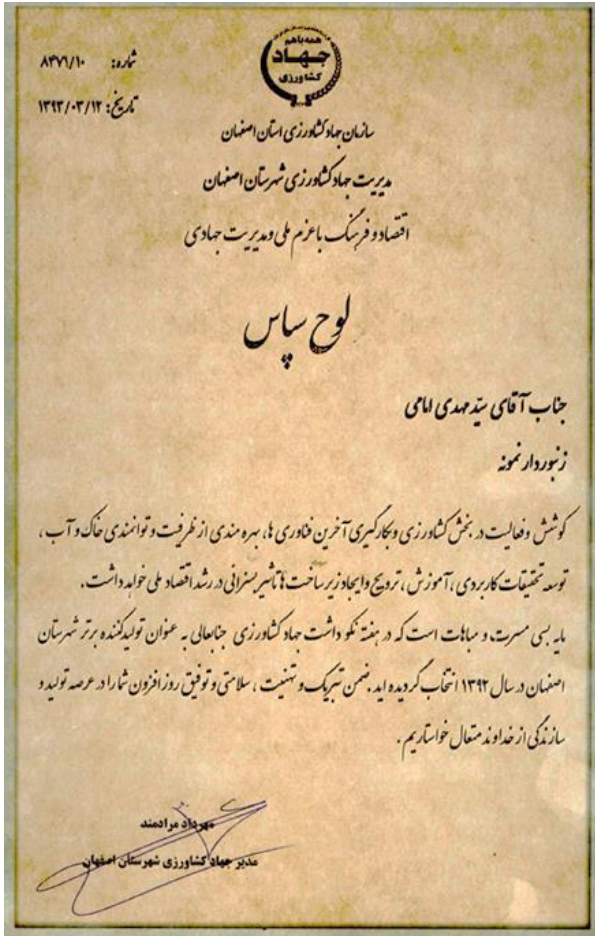 همه با هم
جهاد
کشاورزی
شماره: ۸۴۷۱/۱۰
تاریخ: ۱۳۹۳/۰۳/۱۲
سازمان جهاد کشاورزی استان اصفهان
مدیریت جهاد کشاورزی شهرستان اصفهان
اقتصاد و فرهنگ با عزم ملی و مدیریت جهادی
لوح سپاس
جناب آقای سیّد مهدی امامی
زنبوردار نمونه
کوشش وفعالیت در بخش کشاورزی وبکارگیری آخرین فناوری ها، بهره مندی از ظرفیت و توانمندی خاک و آب ،
توسعه تحقیقات کاربردی ، آموزش ، ترویج وایجاد زیر ساخت ها تاثیر بسزائی در رشد اقتصاد ملی خواهد داشت.
مایه بسی مسرت و مباهات است که در هفته نکو داشت جهاد کشاورزی جنابعالی به عنوان تولیدکننده برتر شهرستان
اصفهان در سال ۱۳۹۲ انتخاب گردیده اید .ضمن تبریک و تهنیت ، سلامتی و توفیق روز افزون شما را در عرصه تولید و
سازندگی از خداوند متعال خواستاریم .
مهرداد مرادمند
مدیر جهاد کشاورزی شهرستان اصفهان